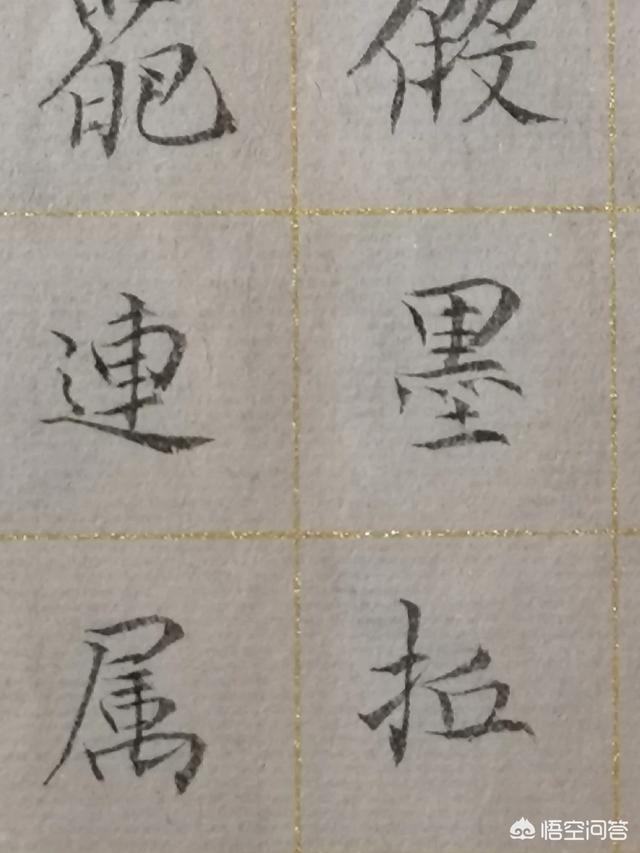 假墨
連属
悟空问答